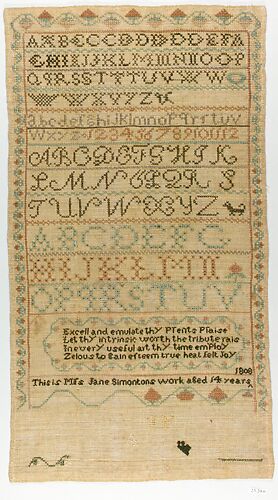 AABBCCDDDEEFA
GHIIJJKLMMNNOOP
QQRSSTTTUVVXWW
WWXXYYZ
abcdefghijklmnopqrrstuv
Wxyz 1 2 3 4 5 6 7 8 9 10 11 12
ABCDEFGHIK
LMNOPQR S
TUVWXYZ
ABCDEFG
HIJKLMN
OPQRSTUV
Excell and emulate thy Pients Plaise
Let thy intrinsic worth the tribute rais
In every useful art thy time employ
Zelous to Gain esteem true heal felt Joy
1808
This is Mis Jane Simontons work aged 14 years